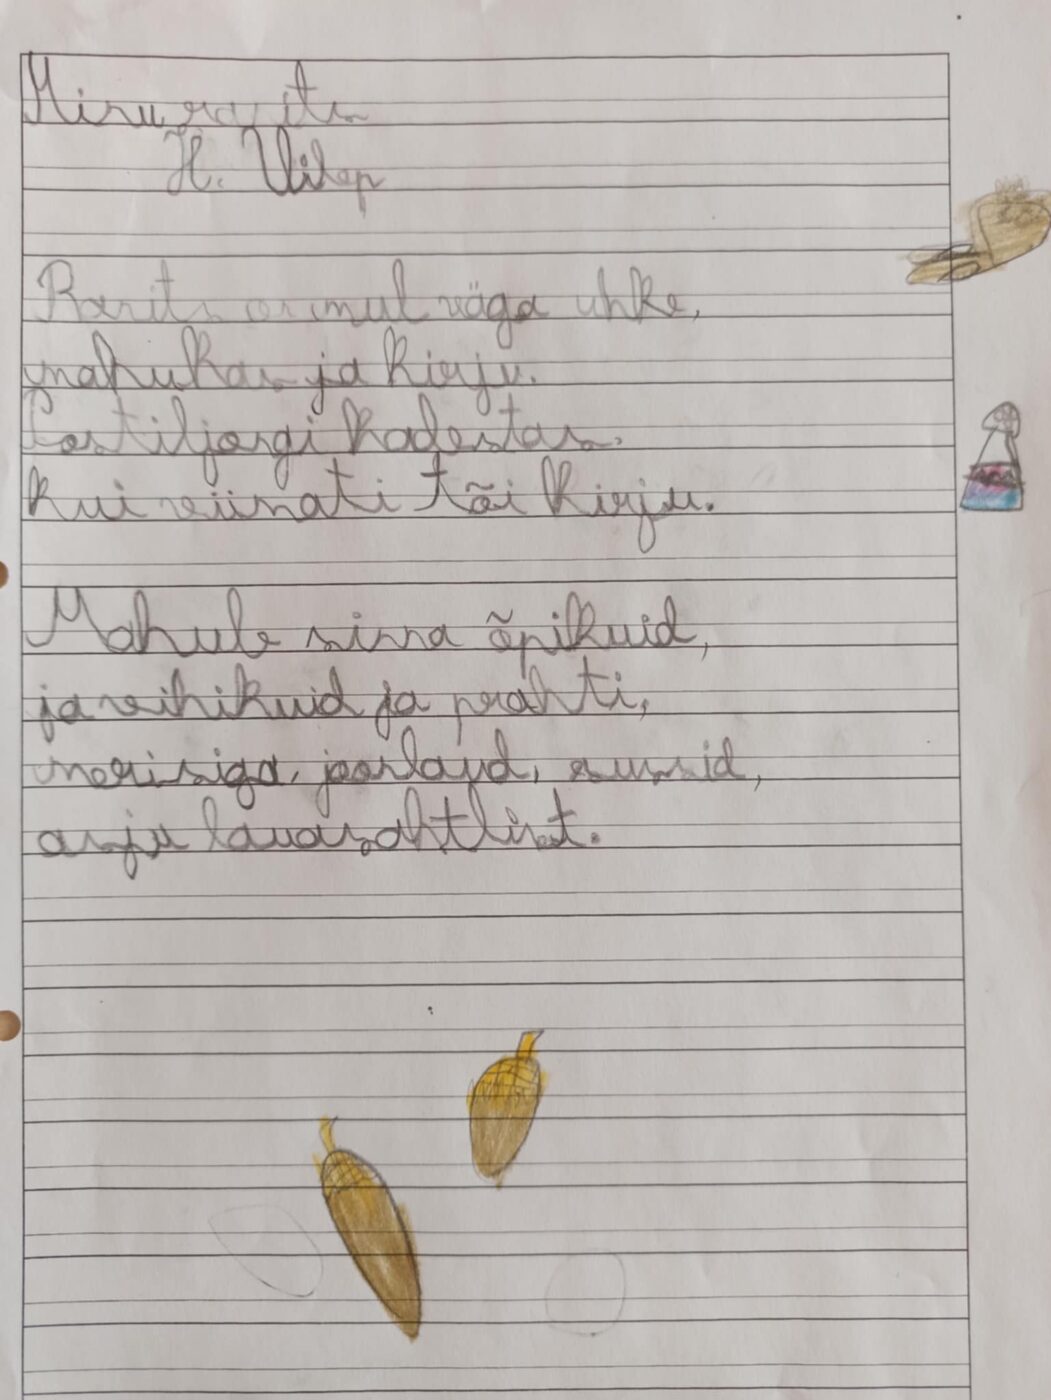 Minu ranits
H. Vilep
Ranits on mul väga uhke,
mahukas ja kirju.
Postiljongi kadestas,
kui viinati tõi kirju.
Mahub sinna õpikuid,
ja vihikuid ja prahti,
merisiga, jääslaud, sussid,
asju lauasahtlist.